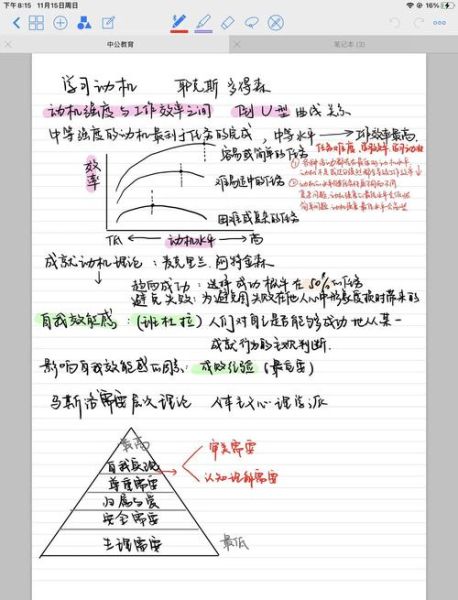 下午8:15 11月15日周日
16%
中公教育
笔记本 (3)
学习动机 耶克斯 多得森
动机强度与工作效率之间 倒U型曲线关系
中等强度的动机最利于任务的完成，中等水平→工作效率最高.
效率
容易或简单的任务
难易适中的任务
困难或复杂的任务
低 ← 动机水平 → 高
成就动机理论：麦克里兰.阿特金森
趋向成功：选择成功概率在50%的任务
避免失败：为避免因失败在他人心中形象度损时带来的
自我效能感：(班杜拉) 人们对自己是否能够成功地从某一
成就行为的主观判断.
影响自我效能感的因素：成败经验 (最重要)
马斯洛需要层次理论 人本主义心理学派
最高
自我实现
审美需要
认知理解需要
尊重需要
归属与爱
安全需要
生理需要
最低